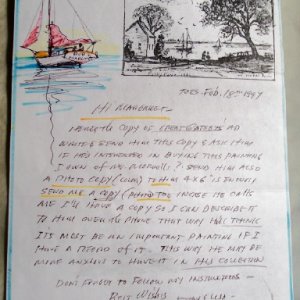 TUES. FEB. 18TH 1997
HI MARGARET -
HERE'S THE COPY OF AD
WRITE & SEND HIM THIS COPY & ASK HIM
IF HE'S INTERESTED IN BUYING THIS PAINTING
I OWN OF M SEND HIM ALSO
A PHOTO COPY TO HIM 4X6" IS ENOUGH
SEND ME A COPY (PHOTO TOO INCASE HE CALLS
ME I'LL HAVE A COPY SO I CAN DESCRIBE IT
TO HIM OVER THE PHONE THAT WAY HE'LL THINK
IT'S MUST BE AN IMPORTANT PAINTING IF I
HAVE A RECORD OF IT. THIS WAY HE MAY BE
MORE ANXIOUS TO HAVE IT IN HIS COLLECTION
DON'T FORGET TO FOLLOW MY INSTRUCTIONS -
BEST WISHES